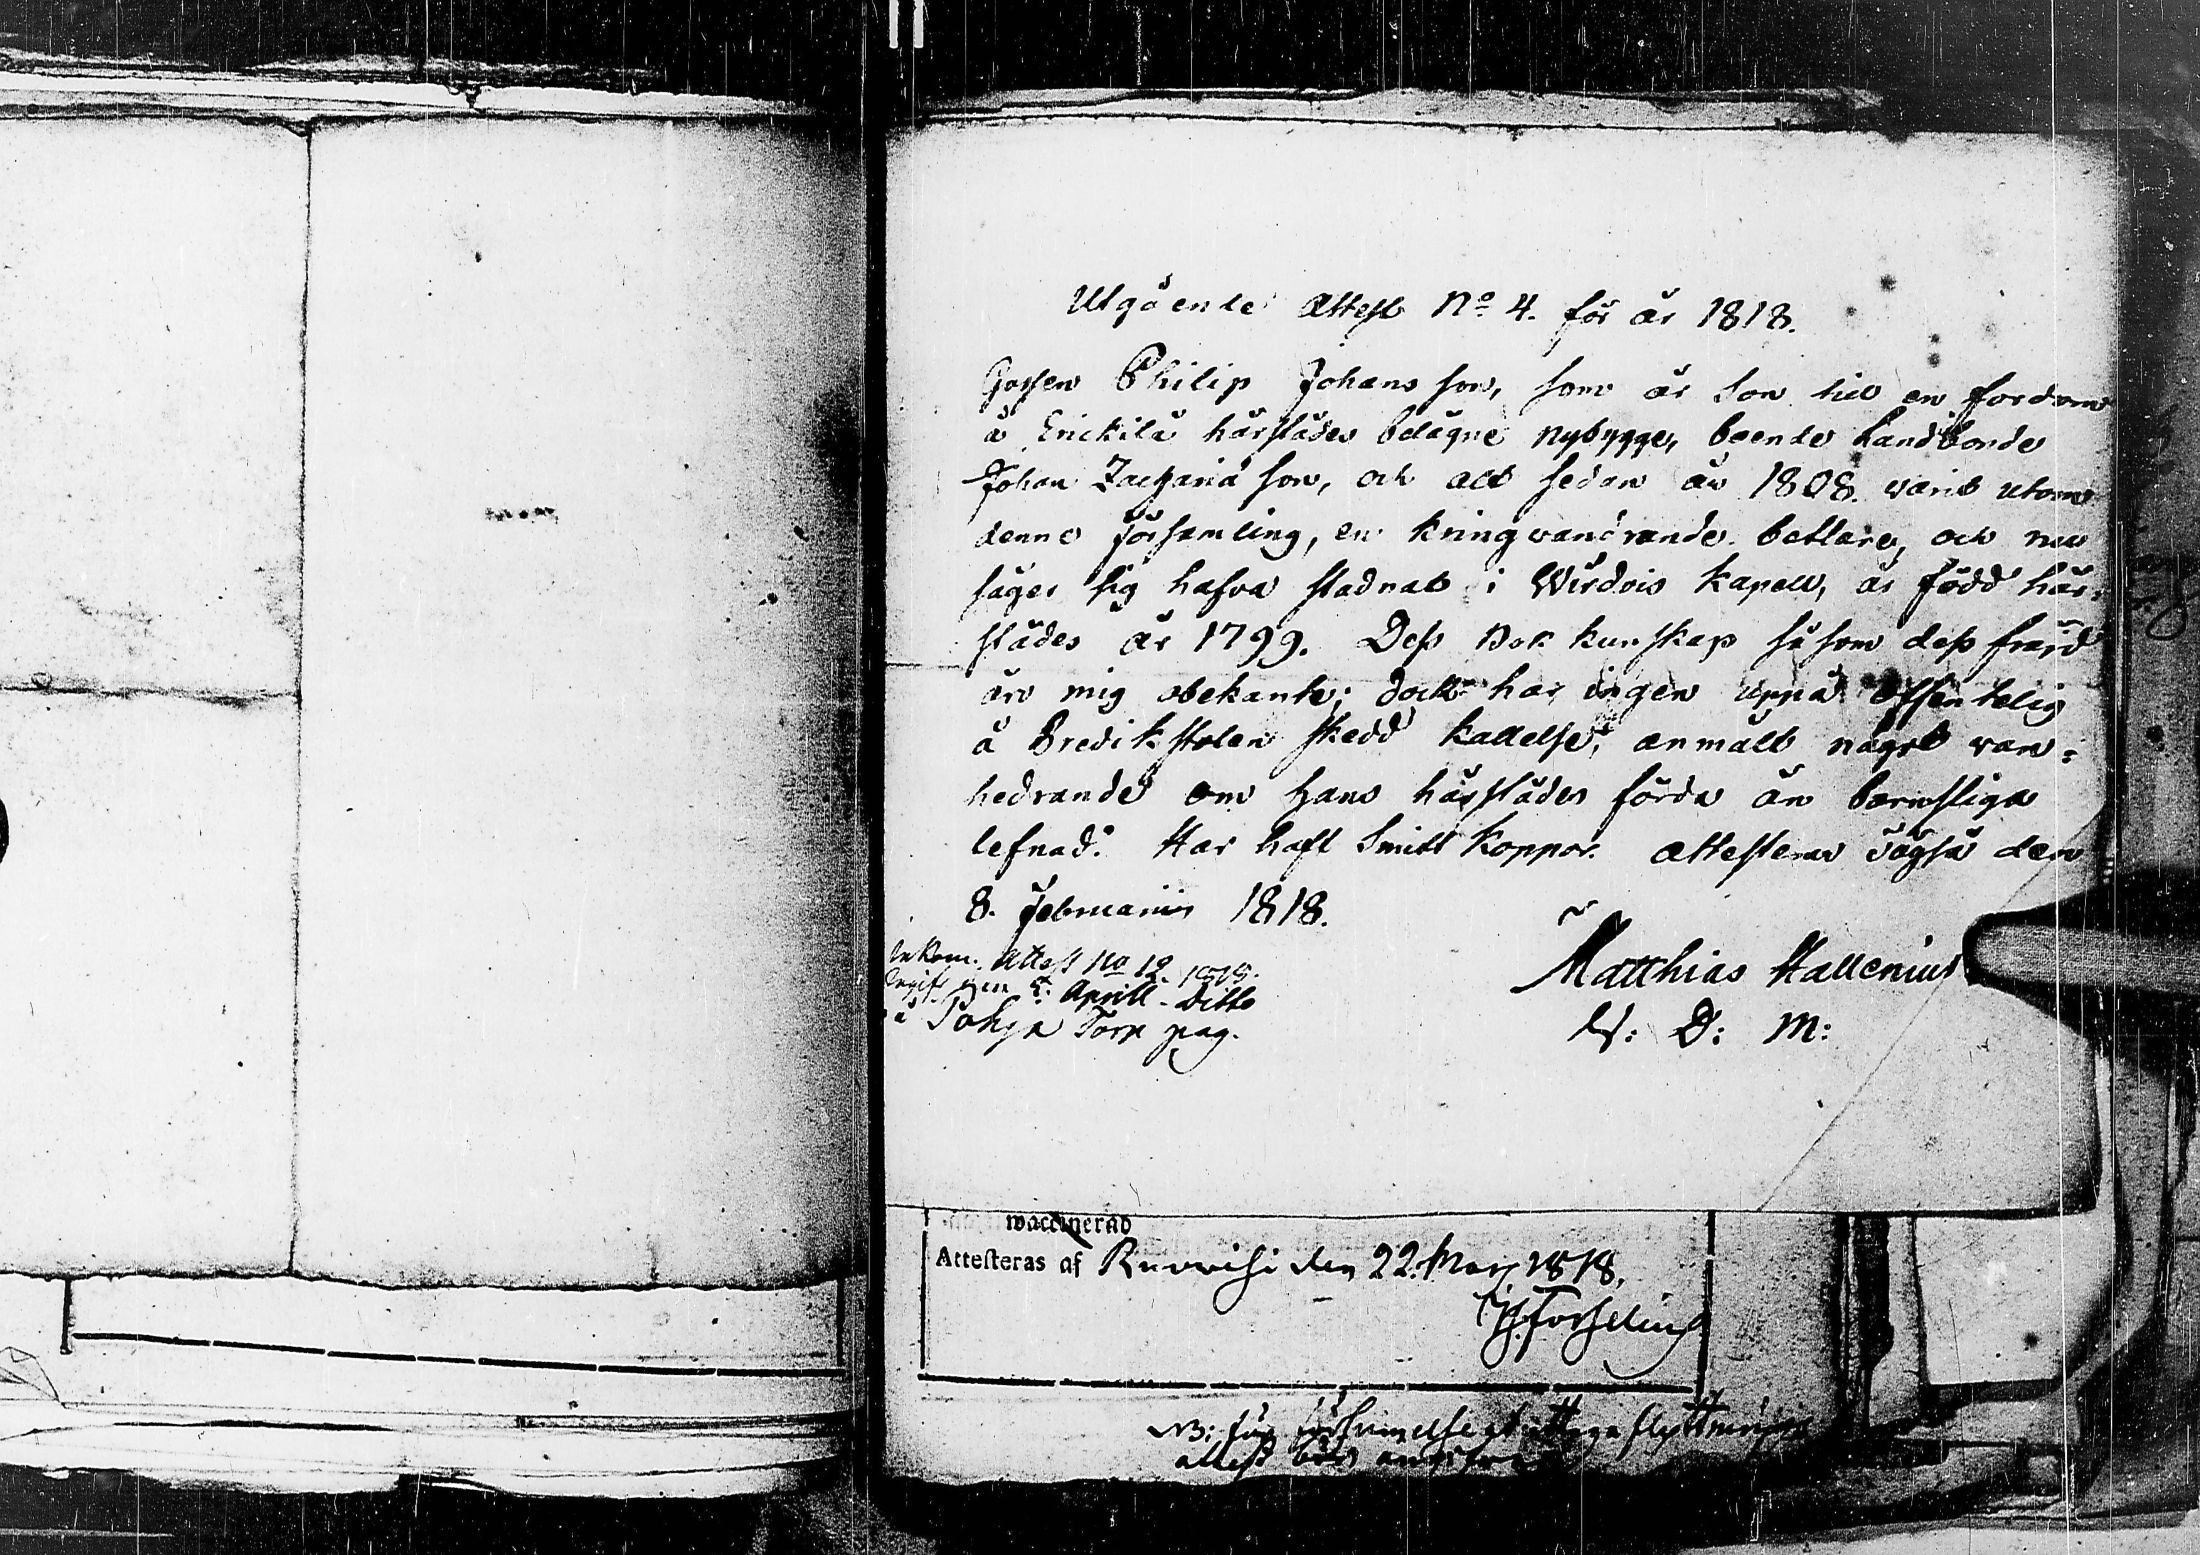 Utgående Attest No 4. för år 1818.
Gossen Philip Johansson, som är Son till en fordom
å Erickilä härstädes belägne nybygge, boende Landbonde
Johan Zachariæson, och allt sedan år 1808. varit utom
denne församling, en kringvandrande bettlare, och nu
säger sig hafva stadnat i Wirdois Kapell, är född här-
städes år 1799. Dess Bok kunskap såsom dess fräjd
äro mig obekante; dock har ingen uppå offentelig
å Predikstolen skedd kallelse, anmält något van-
hedrande om hans härstädes förda än barnsliga
lefnad. Har haft Smitt koppor. Attesteras den
8. Februarii 1818.
Matthias Hallenius
V: D: M:
Inkom. Attest No 12. 1818.
April. Ditto
å Pohja Torp pag.
waccinerad
Attesteras af Ruovesi den 22. Mars 1818.
Forselius
NB:
attest bör